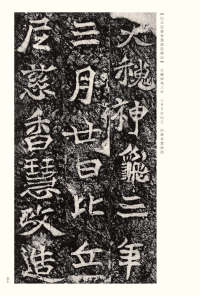 大魏神龜二年
三月廿日比丘
尼慈香慧政造